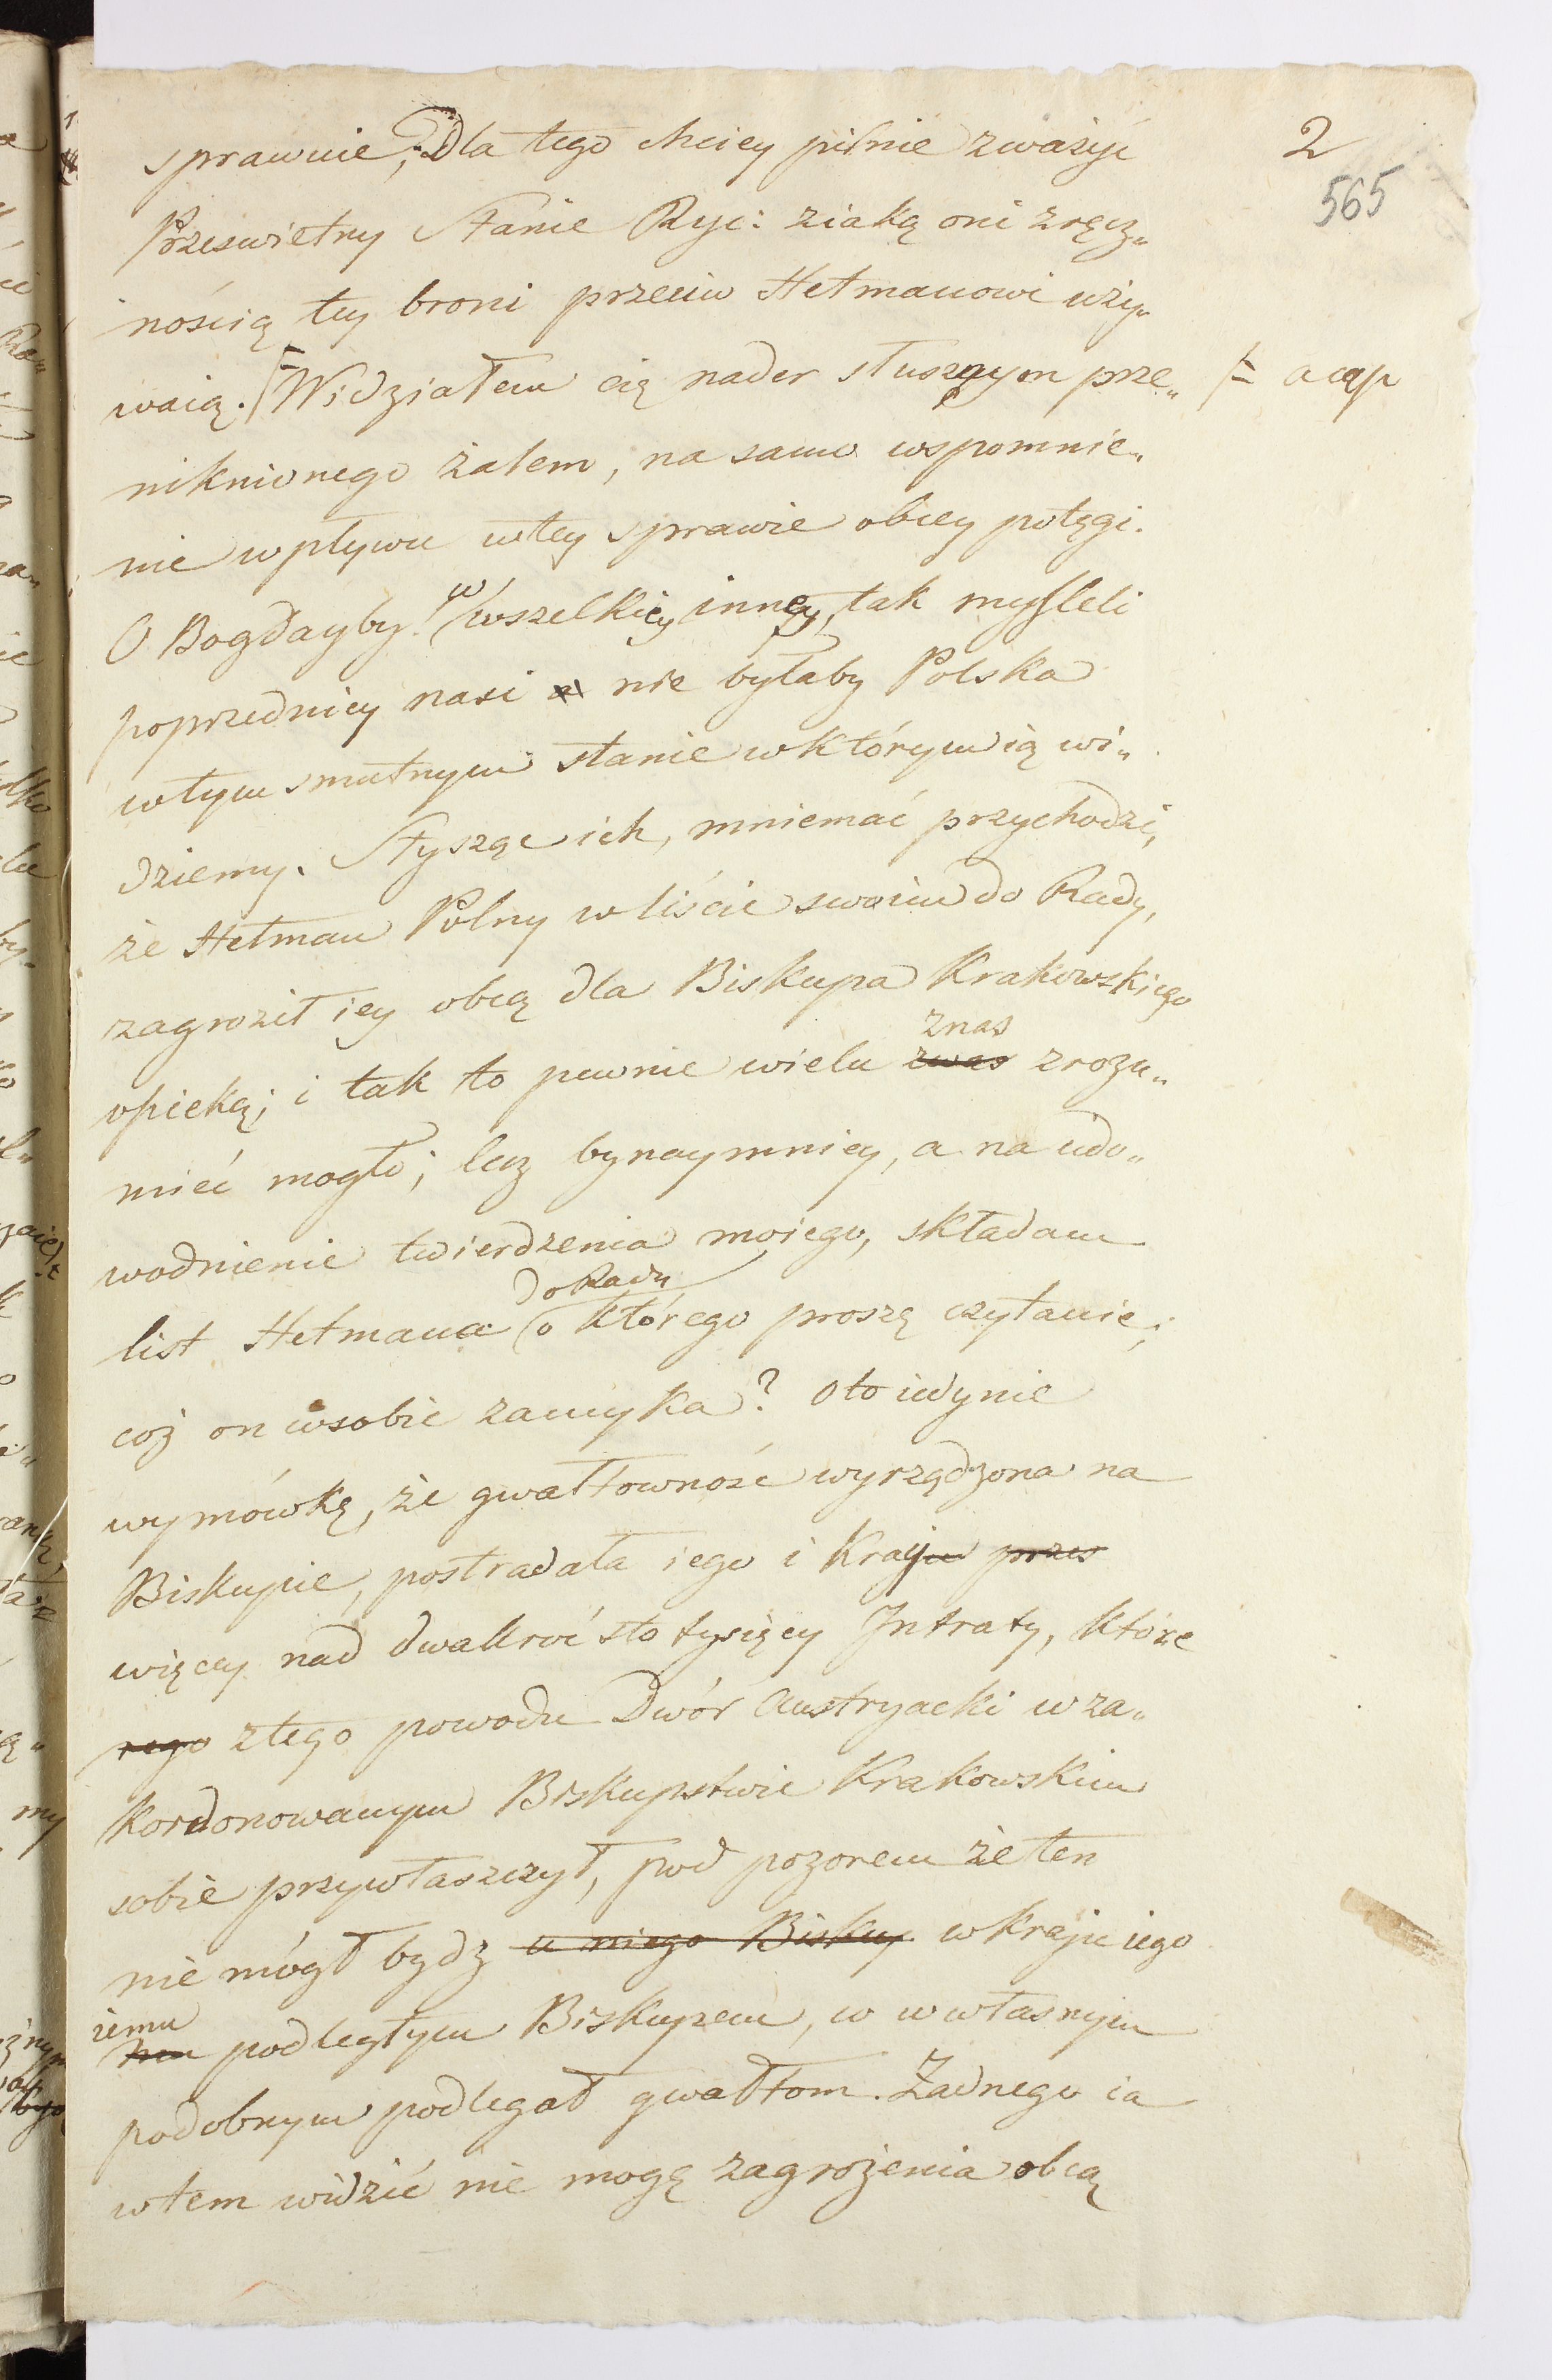 2
565
sprawnie; Dla tego chciey pilnie zważyć
Prześwietny Stanie Ryc: ziaką oni zręcz„
nością tey broni przeciw Hetmanowi uży„
waią. Widziałem cię nader słusznym prze„
niknionego żalem, na samo wspomnie„
nie wpływu wtey sprawie obcey potęgi.
O Bogdayby! w wszelkiey inney, tak myśleli
poprzednicy nasi nie byłaby Polska
wtym smutnym stanie wktórym ią wi„
dziemy. Słysząc ich, mniemać przychodzi,
że Hetman Polny w liście swoim do Rady,
zagroził iey obcą dla Biskupa Krakowskiego
znas
opieką; i tak to pewnie wielu zwas zrozu„
mieć mogło; lecz bynaymniey, a na udo„
wodnienie twierdzenia moiego, składam
do Rady
list Hetmana o którego proszę czytanie;
coż on wsobie zamyka? oto iedynie
wymówkę, że gwałtowność wyrządzona na
Biskupie, postradała iego i Kraju przes
więcey nad dwakroć sto tysięcy Intraty, które
rego ztego powodu Dwór Austryacki w za„
kordonowanym Biskupstwie Krakowskim
sobie przywłaszczył, pod pozorem że ten
nie mógł bydz u niego Biskup wkraju iego
iemu
podległym Biskupem, co w własnym
podobnym podlegał gwałtom. Żadnego ia
wtem widzić nie mogę zagrożenia obcą